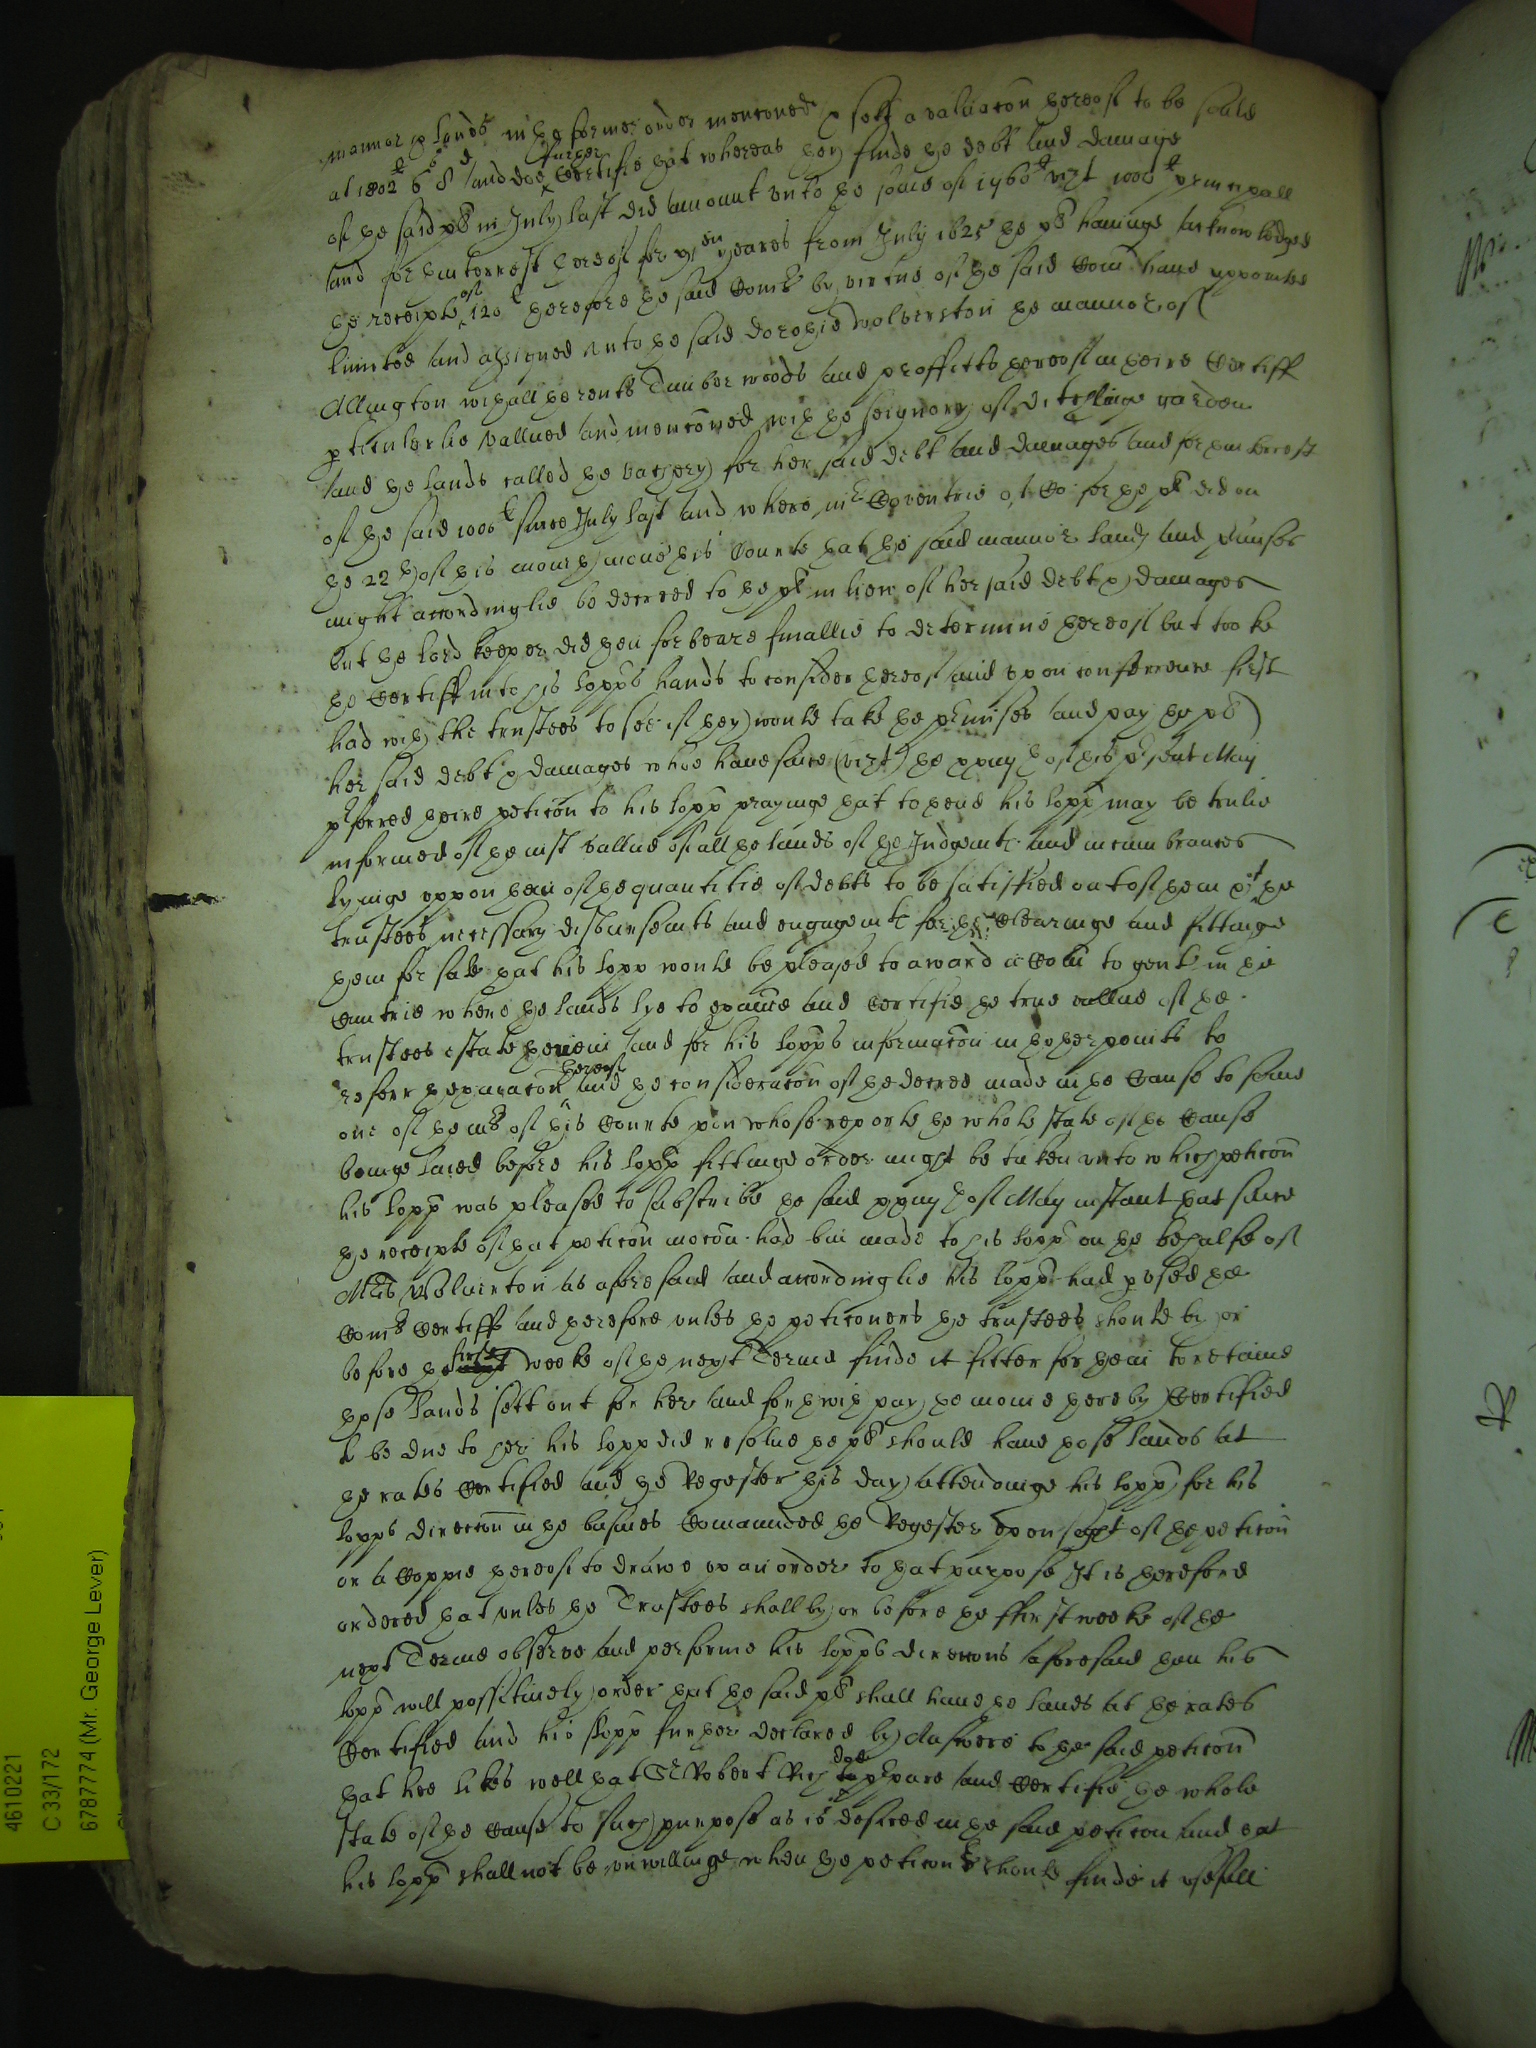 mannor & lands in the former order menconed & sett a valuacon thereof to be sould
at 1802li 6s 8d and doe further Certifie that whereas they finde the debt and damage
of the said plt in July last did amount unto the some of 1960li vizt 1000li principall
and for thinterrest thereof for the yeares from July 1625 the plt havinge acknowledged
the receipte of 120li therefore the said Comrs by virtue of the said Com have appointed
limited and assigned unto the said Dorothie Wolverston the mannor of
Allington with all the rents Timber woods and proffitts thereof in theire Certiff
pticularlie vallued and menconed with the seignory of Ditchlinge garden
and the lands called the Vachery for her said debt and damages and for thinterest
of the said 1000li since July last and where mr Coventrie of Co: for the plt did on
the 22th of this month move this Courte that the said mannor lands and pmisses
might accordinglie be decreed to the plt in liew of her said debt & damages
but the lord keeper did then forbeare finallie to determine thereof but tooke
the Certiff into his lopps hands to consider thereof and upon conferrence first
had with the trustees to see if they would take the pmisses and pay the plt
her said debt & damages who have since (vizt) the xxvijth of this psent May
pferred theire peticon to his lopp prayinge that to thend his lopp may be trulie
informed of the iust vallue of all the lands of the Judgemts and incumbrances
lyinge uppon them of the quantitie of debts to be satisfied out of them & of the
trustees necessary disbursemts and engagemts for the clearinge and fittinge
them for sale that his lopp would be pleased to award a Com to gents in the
Cuntrie where the lands lye to examine and Certifie the true vallue of the
trustees estate therein and for his lopps informacon in thother points to
referr thexaminacon thereof and the consideracon of the decree made in the Cause to some
one of the mrs of this Courte upon whose reporte the whole state of the Cause
beinge laied before his lopp fittinge order might be taken unto which peticon
his lopp was pleased to subscribe the said xxvijth of May instant that since
the receipte of that peticon mocon had bin made to his lopp on the behalfe of
Mris Wolverston as aforesaid and accordinglie his lopp had pused the
Comrs Certiff and therefore unles the peticoners the trustees should by or
before the first weeke of the next Terme finde it fitter for them to retaine
those lands sett out for her and forthwith pay the monie thereby Certified
to be due to her his lopp did resolve the plt should have those lands at
the rates Certified and the Register this day attendinge his lopp for his
lopps direccon in the busines Comaunded the Register upon sight of the peticon
or a Coppie thereof to drawe up an order to that purpose It is therefore
ordered that unles the Trustees shall by or before the first weeke of the
next Terme observe and performe his lopps direccons aforesaid then his
lopp will possitively order that the said plt shall have the lands at the rates
Certified and his lopp further declared by Answere to the said peticon
that hee likes well that Sr Robert Rich doe ppare and Certifie the whole
state of the cause to such purpose as is desired in the said peticon and that
his lopp shall not be unwillinge when the peticonrs should finde it usefull
4610221
C 33/172
6787774 (Mr. George Lever)